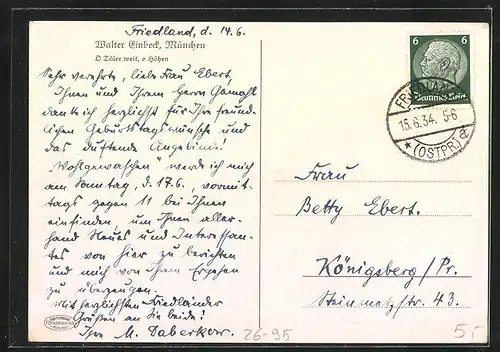 Friedland, d. 14.6.
Walter Einbeck, München
O Täler weit, o Höhen
Sehr verehrte, liebe Frau Ebert,
Ihnen und Ihrem Herrn Gemahl
danke ich herzlichst für Ihre freund-
lichen Geburtstagswünsche und
das duftende Angebinde!
"Wohlgewaschen" werde ich mich
am Sonntag, d. 17.6., vormit-
tags gegen 11 bei Ihnen
einfinden um Ihnen aller-
hand Neues und Interessan-
tes von hier zu berichten
und mich von Ihrem Ergehen
zu überzeugen.
Mit herzlichsten Friedländer
Grüßen an Sie beide!
Ihre M. Daberkow.
6 6
Deutsches Reich
15.6.34. 5-6
(OSTPR.) a
Frau
Betty Ebert.
Königsberg/Pr.
Steinmetzstr. 43.
26-95
5,-